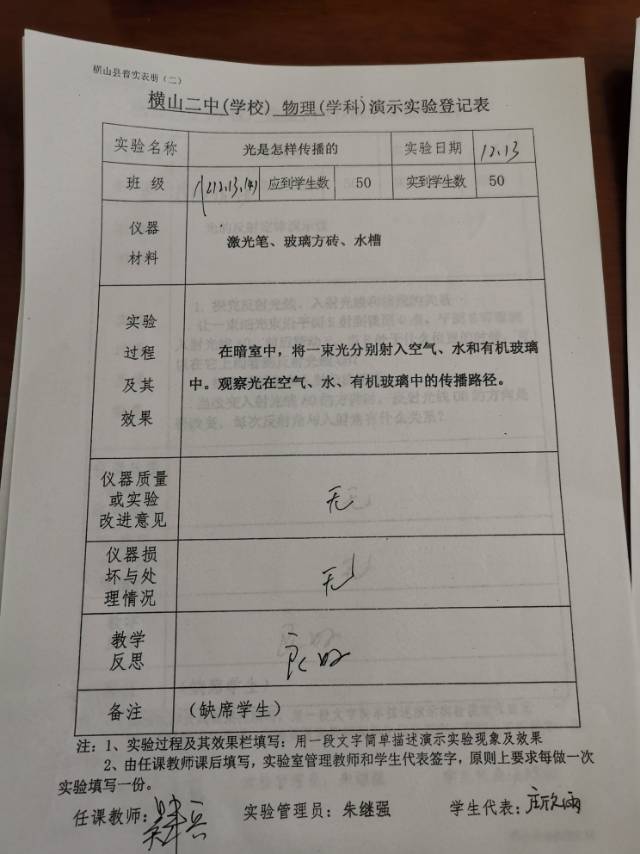 横山县普实表册（二）
横山二中(学校) 物理(学科)演示实验登记表
实验名称 光是怎样传播的 实验日期 12.13
班 级 应到学生数 50 实到学生数 50
仪器
材料
激光笔、玻璃方砖、水槽
实验
过程
及其
效果
在暗室中，将一束光分别射入空气、水和有机玻璃
中。观察光在空气、水、有机玻璃中的传播路径。
仪器质量
或实验
改进意见
无
仪器损
坏与处
理情况
无
教学
反思
良好
备注 （缺席学生）
注：1、实验过程及其效果栏填写：用一段文字简单描述演示实验现象及效果
2、由任课教师课后填写，实验室管理教师和学生代表签字，原则上要求每做一次
实验填写一份。
任课教师： 实验管理员：朱继强 学生代表：